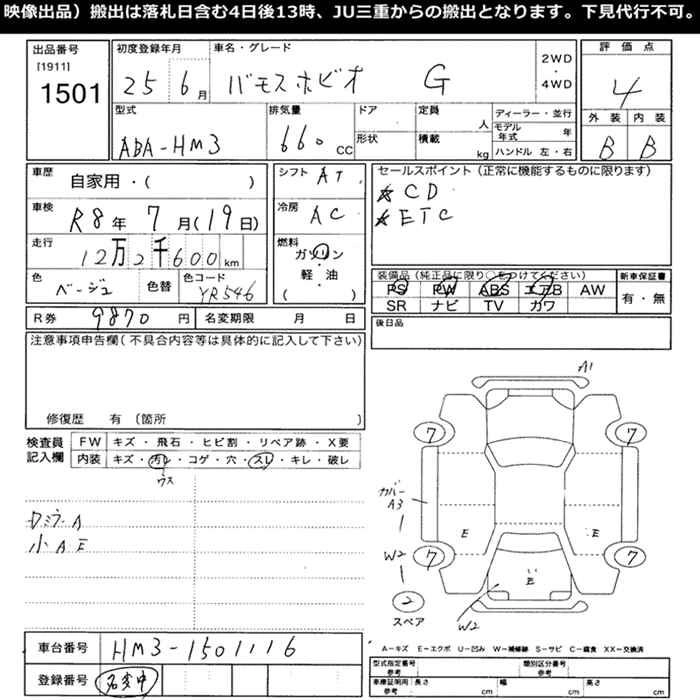 映像出品）搬出は落札日含む4日後13時、JU三重からの搬出となります。下見代行不可。
出品番号
[1911]
1501
初度登録年月
25 6月
車名・グレード
バモスホビオ G
2WD
・
4WD
評価点
4
外装 内装
B B
型式
ABA-HM3
排気量
660 CC
ドア
形状
定員 人
積載 kg
ディーラー・並行
モデル年式 年
ハンドル 左・右
車歴
自家用・( )
車検
R8年 7月(19日)
走行
12万2千600km
色
ベージュ
色替
色コード
YR546
シフト
AT
冷房
AC
燃料
ガソリン
・
軽・油
( )
セールスポイント（正常に機能するものに限ります）
☆CD
☆ETC
装備品（純正品に限り○をつけてください）
PS PW ABS エアB AW
SR ナビ TV カワ
新車保証書
有・無
後日品
R券 9870円
名変期限 月 日
注意事項申告欄（不具合内容等は具体的に記入して下さい）
修復歴 有（箇所 ）
検査員
記入欄
FW キズ・飛石・ヒビ割・リペア跡・X要
内装 キズ・汚レ・コゲ・穴・スレ・キレ・破レ
ウス
小AE
A1
7 7
カバー
A3
E E
W2
7 7
E
2
スペア
W2
A―キズ E―エクボ U―凹み W―補修跡 S―サビ C―腐食 XX―交換済
車台番号 HM3-1501116
登録番号 名変中
型式指定番号
参考
類別区分番号
参考
車庫証明用
参考
長さ cm
幅 cm
高さ cm